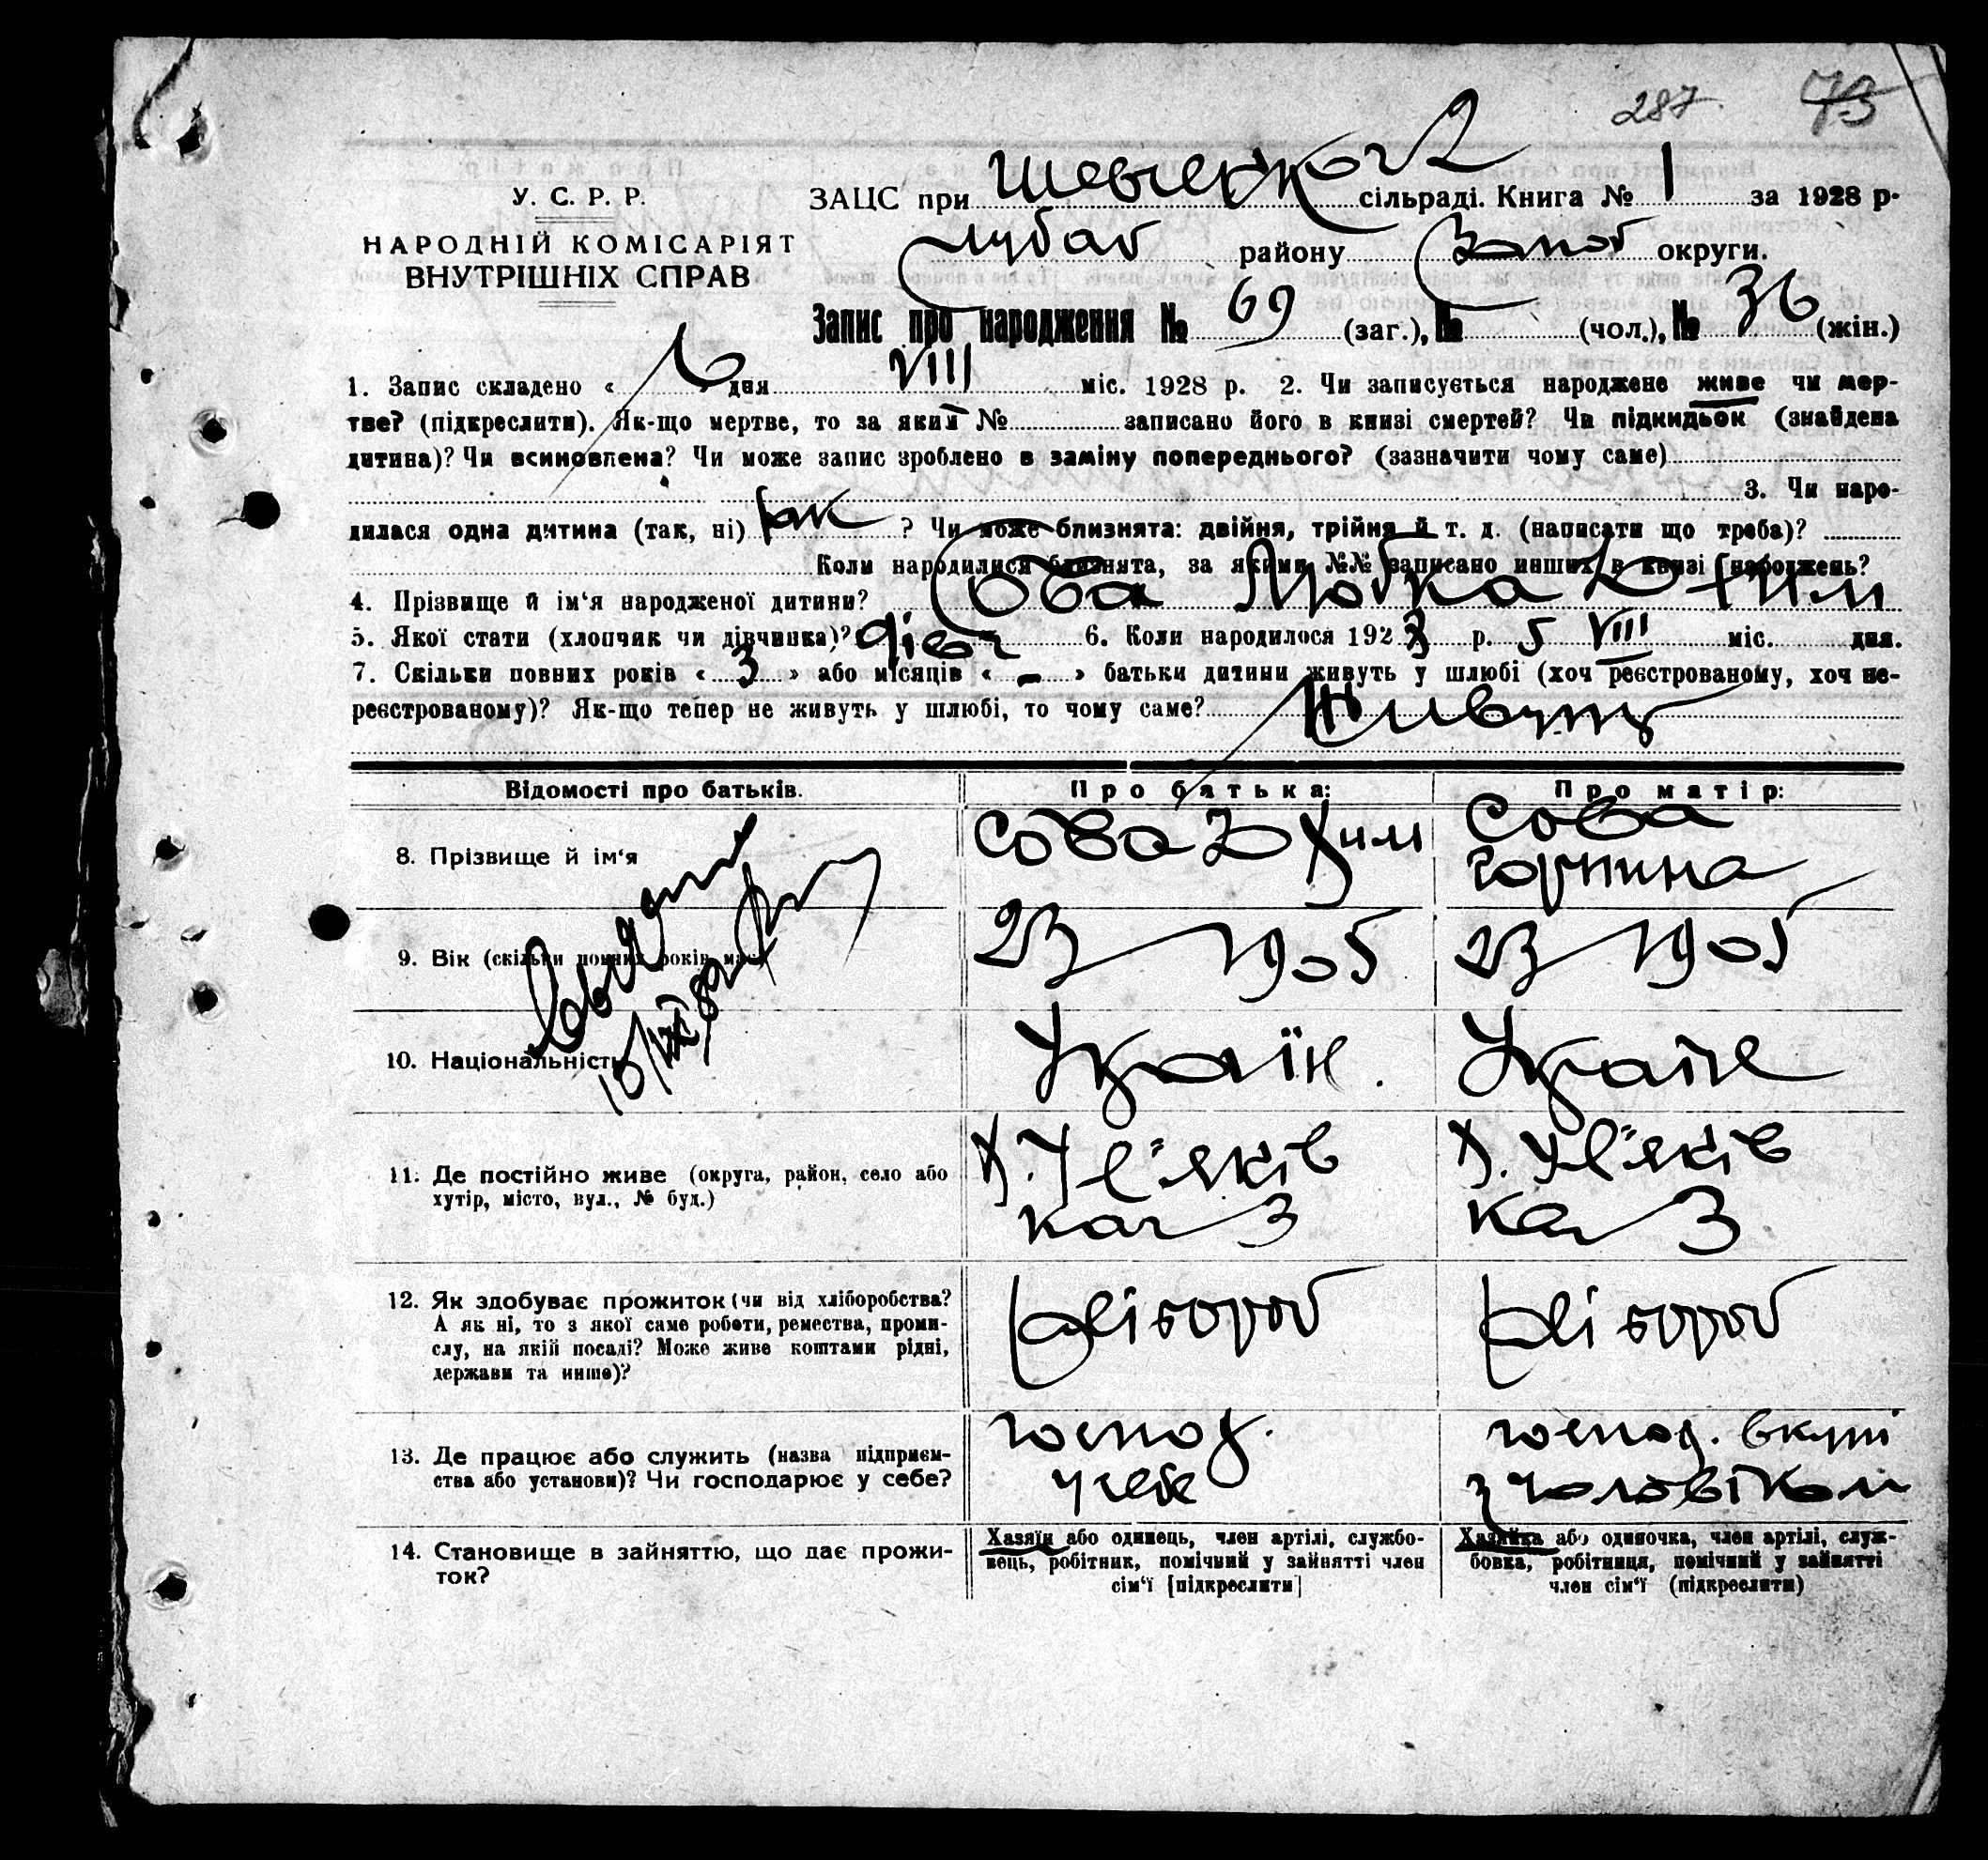 287 73
У. С. Р. Р.
НАРОДНІЙ КОМІСАРІЯТ
ВНУТРІШНІХ СПРАВ
ЗАЦС при сільраді. Книга № 1 за 1928 р.
району округи.
Запис про народження № 69 (заг.), № (чол.), № 36 (жін.)
1. Запис складено « 6 » дня VIII міс. 1928 р. 2. Чи записується народжене живе чи мер-
тве? (підкреслити). Як-що мертве, то за яким № записано його в книзі смертей? Чи підкидьок (знайдена
дитина)? Чи всиновлена? Чи може запис зроблено в заміну попереднього? (зазначити чому саме)
3. Чи наро-
дилася одна дитина (так, ні) так ? Чи може близнята: двійня, трійня й т. д. (написати що треба)?
Коли народилися близнята, за якими №№ записано инших в книзі народжень?
4. Прізвище й ім‘я народженої дитини? Сова Любка
5. Якої стати (хлопчик чи дівчинка)? дівч 6. Коли народилося 1928 р. 5 VIII міс. дня.
7. Скільки повних років « 3 » або місяців « - » батьки дитини живуть у шлюбі (хоч реєстрованому, хоч не-
реєстрованому)? Як-що тепер не живуть у шлюбі, то чому саме? Живуть
Відомості про батьків. Про батька: Про матір:
8. Прізвище й ім‘я Сова Юхим Сова
Горпина
9. Вік (скільки повних років має) 23 1905 23 1905
10. Національність Україн. Україн
11. Де постійно живе (округа, район, село або
хутір, місто, вул., № буд.)
12. Як здобуває прожиток (чи від хліборобства?
А як ні, то з якої саме роботи, ремества, проми-
слу, на якій посаді? Може живе коштами рідні,
держави та инше)?
Хлібороб Хлібороб
13. Де працює або служить (назва підприєм-
ства або установи)? Чи господарює у себе?
господ. у себе
господ. вкупі
з чоловіком
14. Становище в зайняттю, що дає прожи-
ток?
Хазяїн або одинець, член артілі, службо-
вець, робітник, помічний у зайнятті член
сім‘ї [підкреслити]
Хазяйка або одиночка, член артілі, служ-
бовка, робітниця, помічний у зайнятті
член сім‘ї (підкреслити)